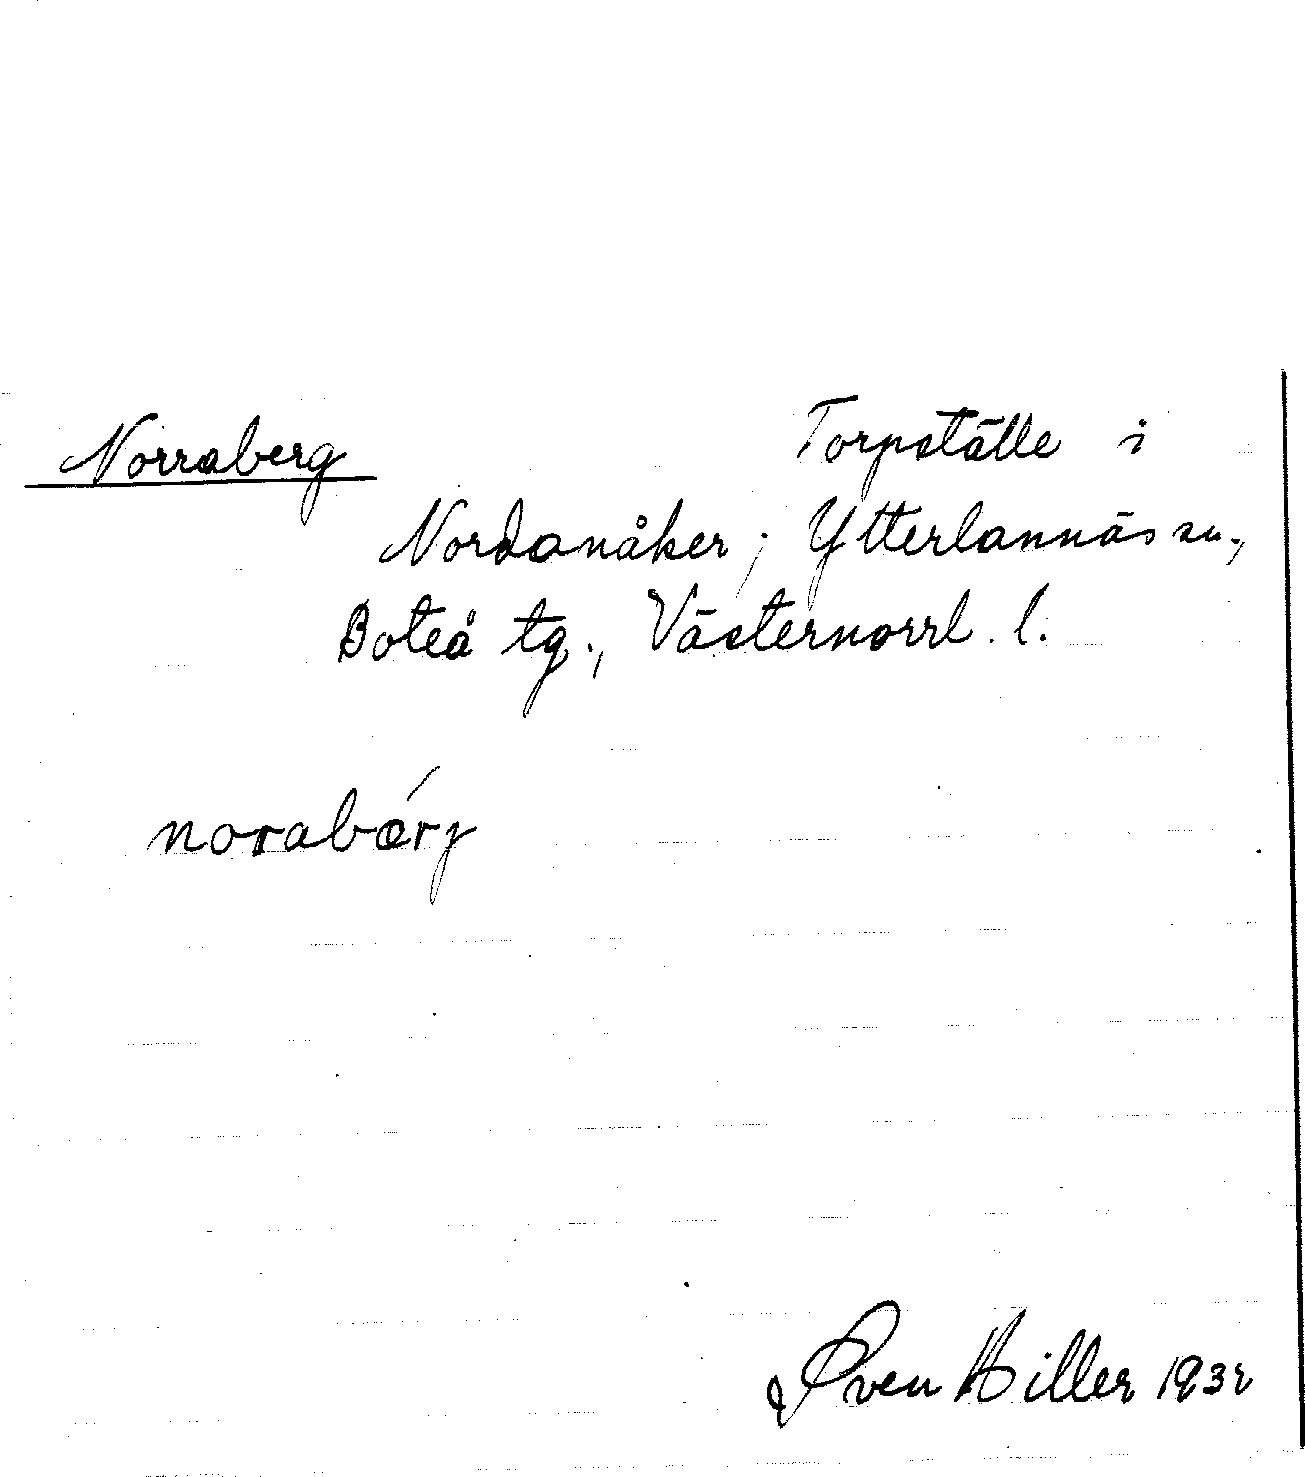 Norraberg Torpställe i
Nordanåker, Ytterlannäs sn.,
Boteå tg., Västernorrl. l.
norabǽrj
Sven Hiller 1932